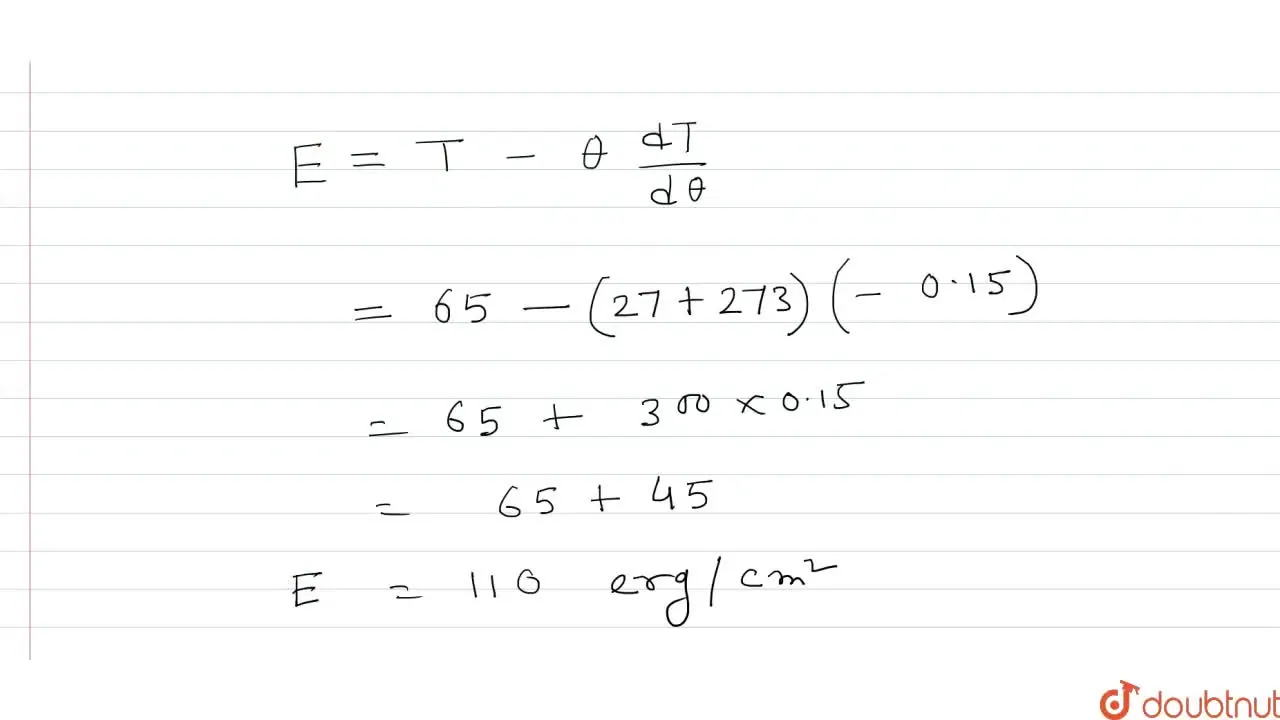 E = T - θ dT/dθ
= 65 - (27 + 273) (- 0.15)
= 65 + 300 × 0.15
= 65 + 45
E = 110 erg/cm²
doubtnut